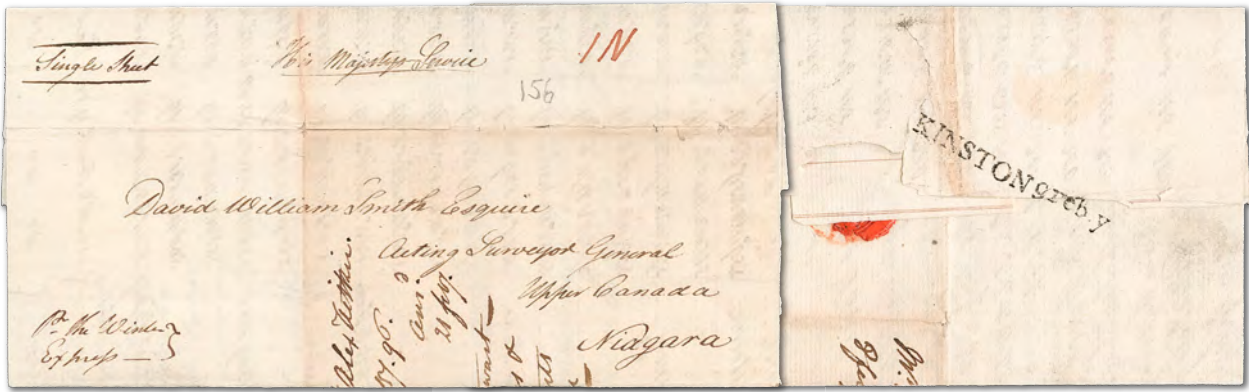 Single Sheet
His Majestys Service
1N
156
David William Smith Esquire
Acting Surveyor General
Upper Canada
Niagara
Pr. the Winter
Express
Alex Aitkin.
97. 96.
21 fey.
KINSTON 9 Feb. y